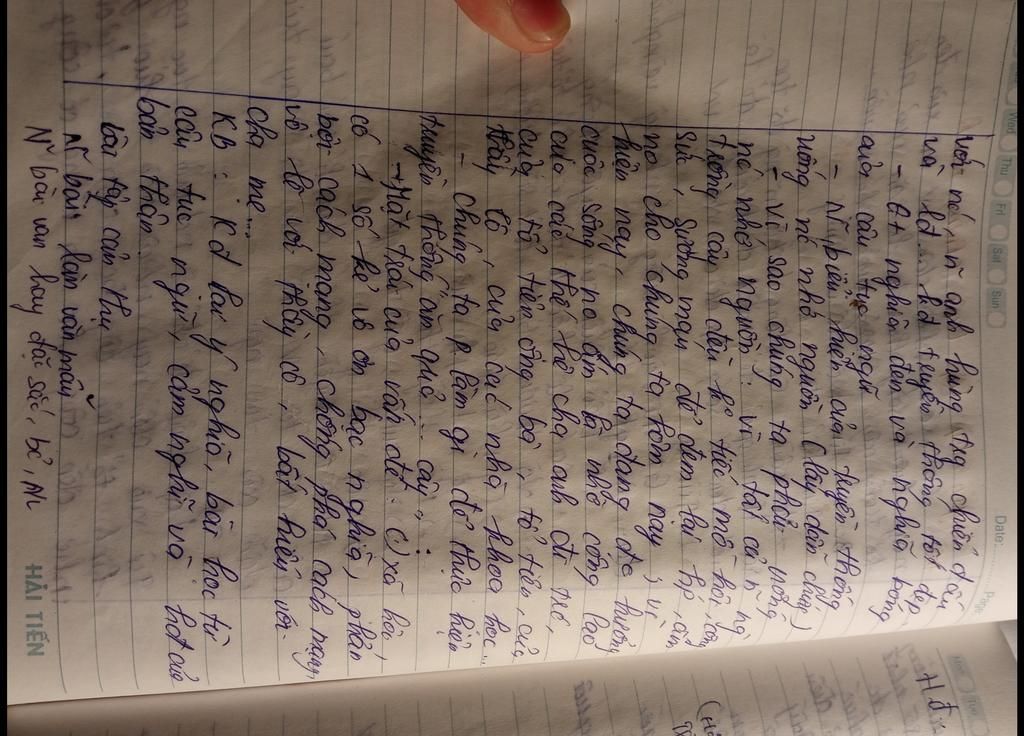 với nó, ñ anh hùng trg chiến đấu
và lđ... kđ truyền thống tốt đẹp
- Gt nghĩa đen và nghĩa bóng
của câu tục ngữ
- Ñ biểu hiện của truyền thống
uống nc nhớ nguồn (lấy dẫn chứng)
- Vì sao chúng ta phải uống
nc nhớ nguồn: vì tất cả ñ
trường cân đều
sức, xương máu để đem lại
no cho chúng ta hôm nay; vì
hiện nay, chúng ta đang đc hưởng
cuộc sống no ấm là nhờ công lao
của các thế hệ cha anh đi trc,
của tổ tiên ông bà, tổ tiên, của
thầy cô, của các nhà khoa học...
- Chúng ta p làm gì để thực hiện
truyền thống ăn quả ... cây
→ Mặt trái của vấn đề: (/) xã hội
có 1 số kẻ vô ơn bạc nghĩa, phản
bội cách mạng, chống phá cách mạng,
vô lễ với thầy cô, bất hiếu với
cha mẹ...
KB: Kđ lại ý nghĩa, bài học từ
câu tục ngữ, cảm nghĩ và hđ của
bản thân.
Ñ bài làm văn mẫu
Ñ bài văn hay đặc sắc,
HẢI TIẾN
Date:
Wed
Thu
Fri
Sat
Sun